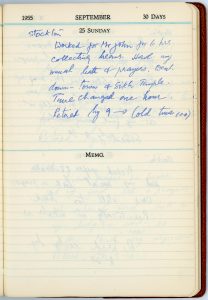 1955 SEPTEMBER 30 DAYS
25 SUNDAY
Stockton
Worked for Mr John for 6 hrs
collecting beans. Had my
usual bath & prayers. Went
down town & Sikh Temple.
Time changed one hour.
Retired by 9 → (old time
MEMO.